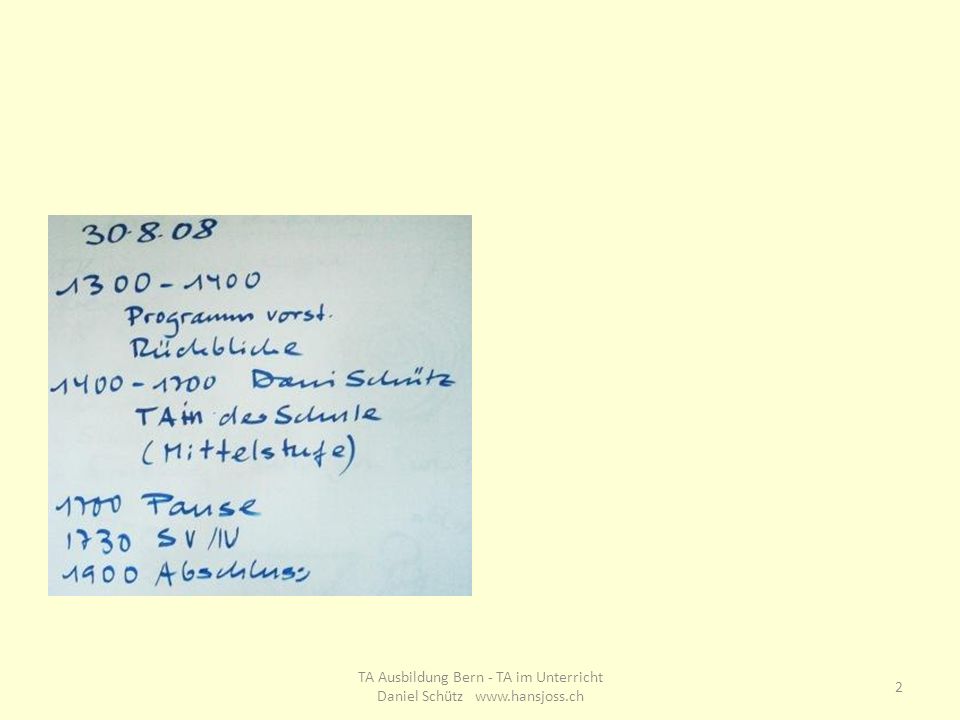 30.8.08
1300 - 1400
Programm vorst.
Rückblicke
1400 - 1700 Dani Schütz
TA in der Schule
(Mittelstufe)
1700 Pause
1730 SV/IV
1900 Abschluss
TA Ausbildung Bern - TA im Unterricht
Daniel Schütz www.hansjoss.ch
2